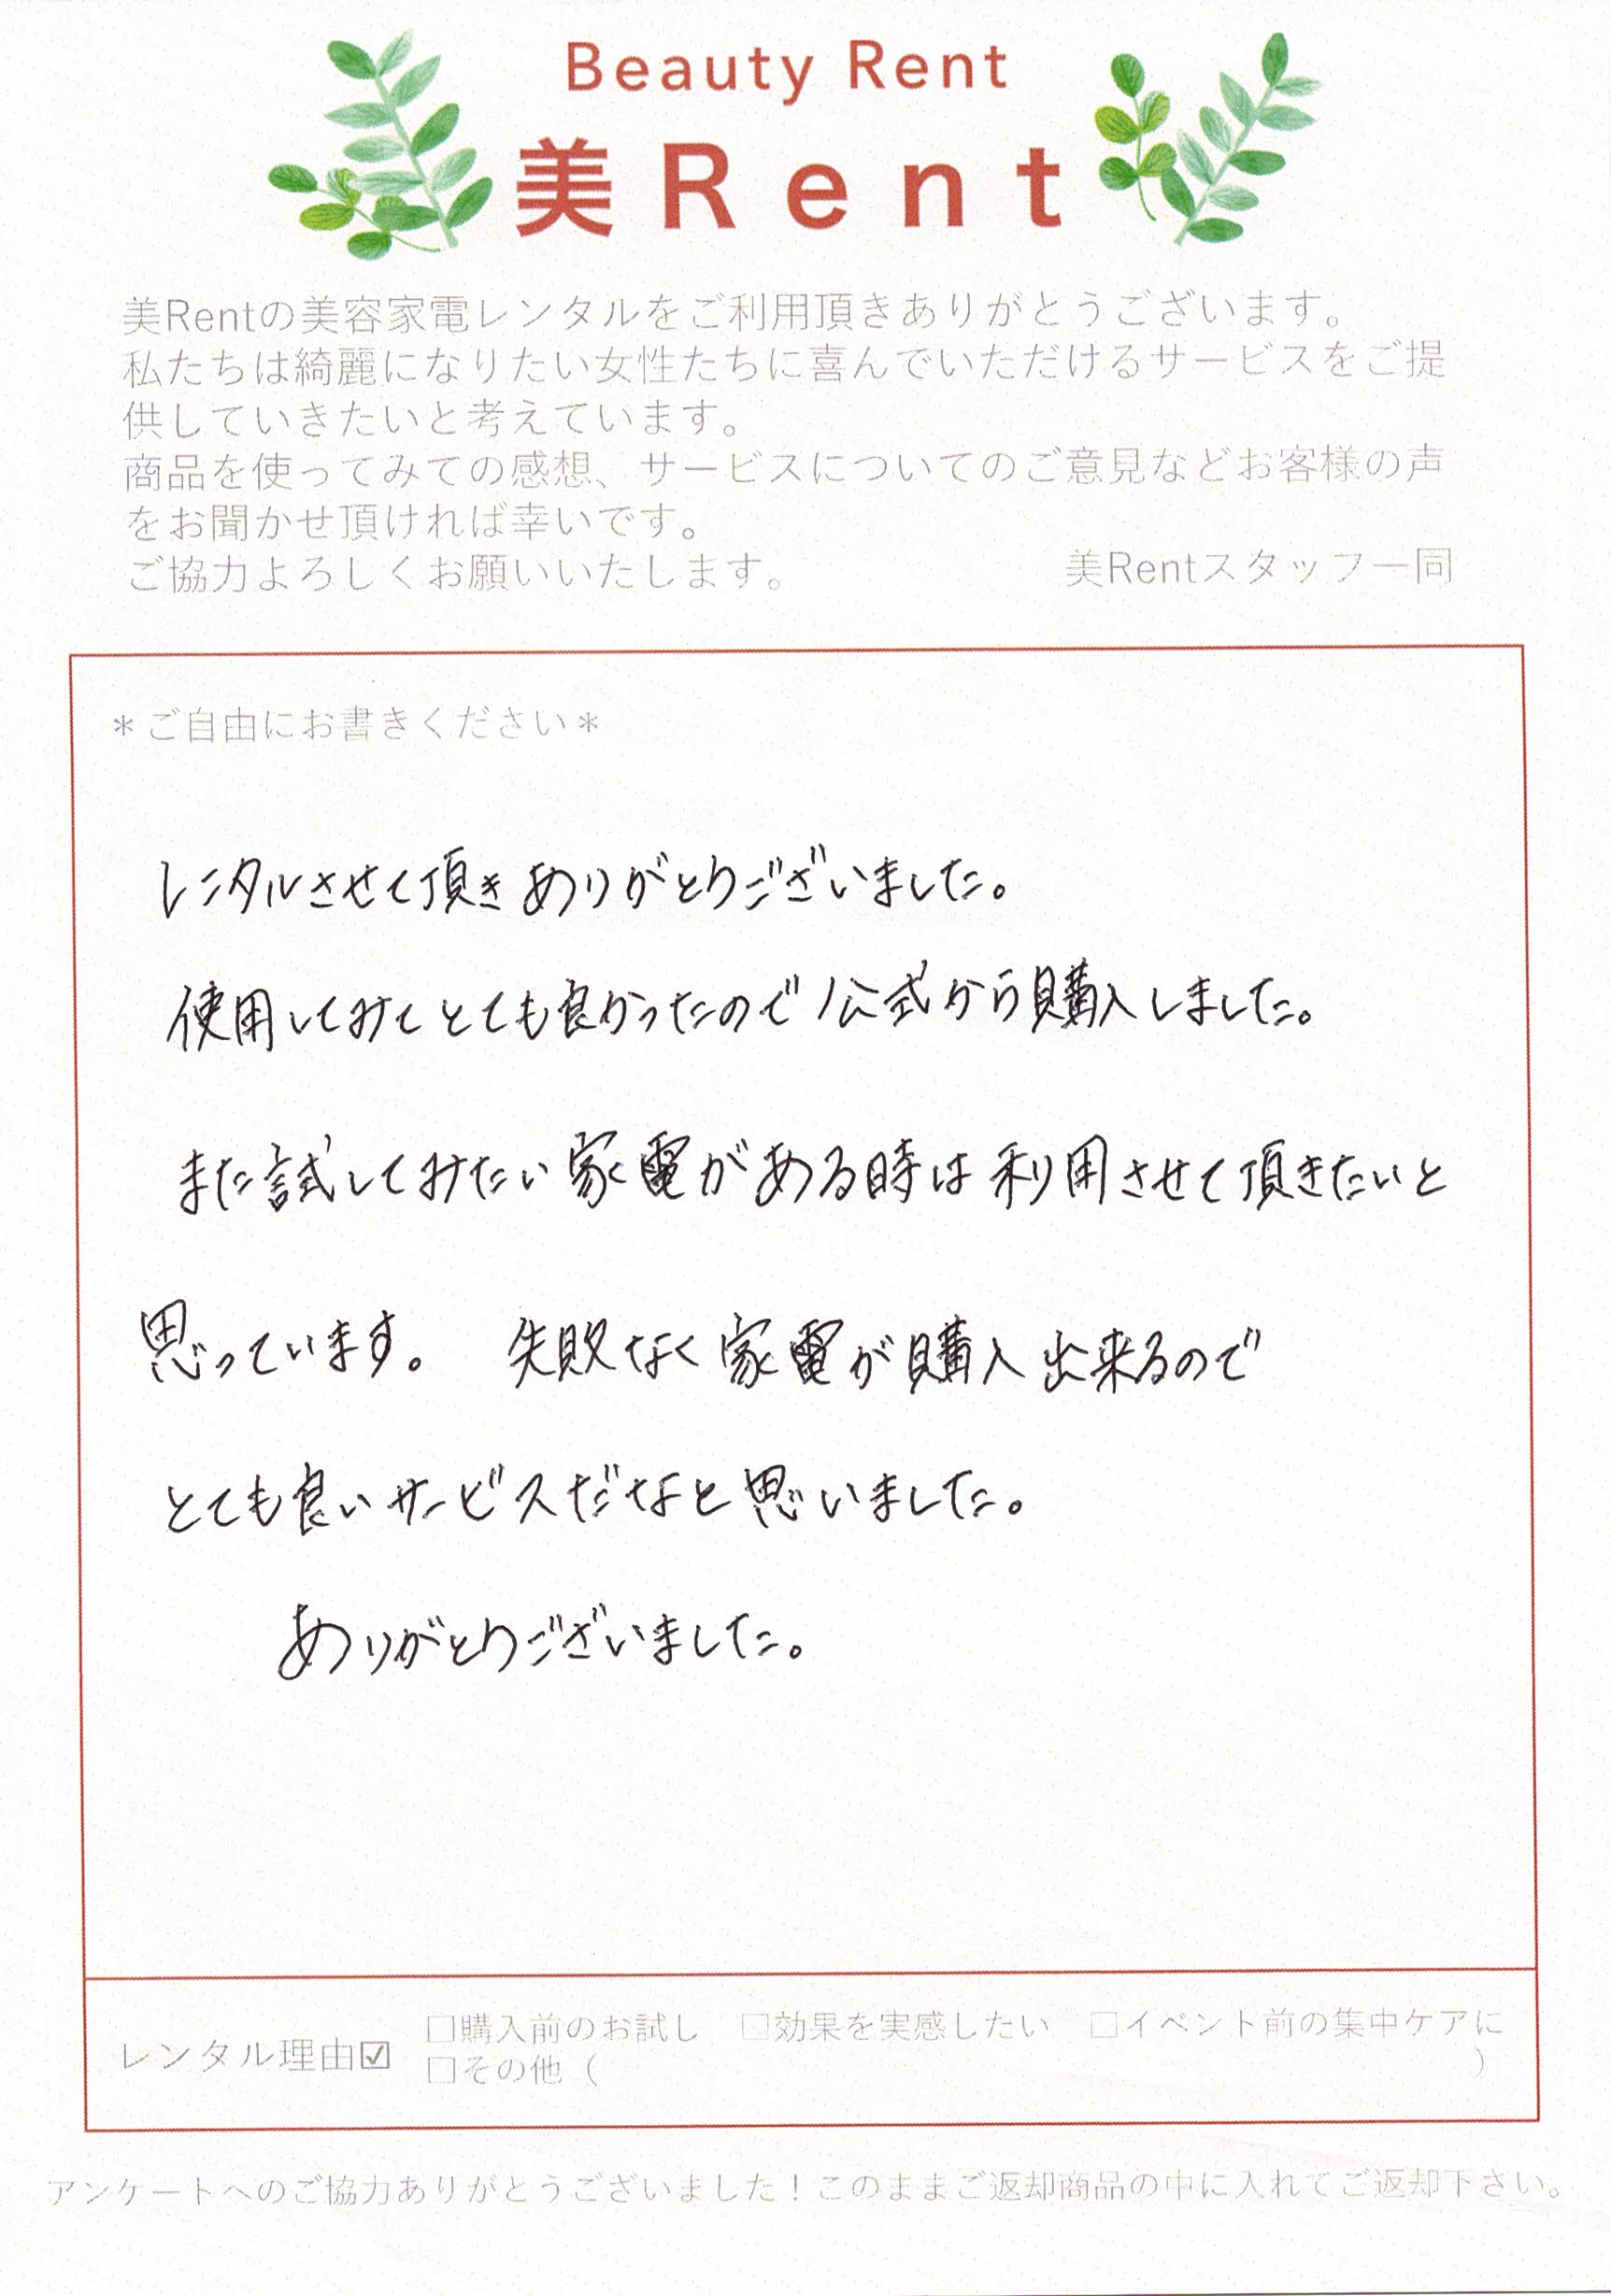 Beauty Rent
美Rent
美Rentの美容家電レンタルをご利用頂きありがとうございます。
私たちは綺麗になりたい女性たちに喜んでいただけるサービスをご提
供していきたいと考えています。
商品を使ってみての感想、サービスについてのご意見などお客様の声
をお聞かせ頂ければ幸いです。
ご協力よろしくお願いいたします。 美Rentスタッフ一同
＊ご自由にお書きください＊
レンタルさせて頂きありがとうございました。
使用してみてとても良かったので公式から購入しました。
また試してみたい家電がある時は利用させて頂きたいと
思っています。 失敗なく家電が購入出来るので
とても良いサービスだなと思いました。
ありがとうございました。
レンタル理由☑ □購入前のお試し □効果を実感したい □イベント前の集中ケアに
□その他（ ）
アンケートへのご協力ありがとうございました！このままご返却商品の中に入れてご返却下さい。